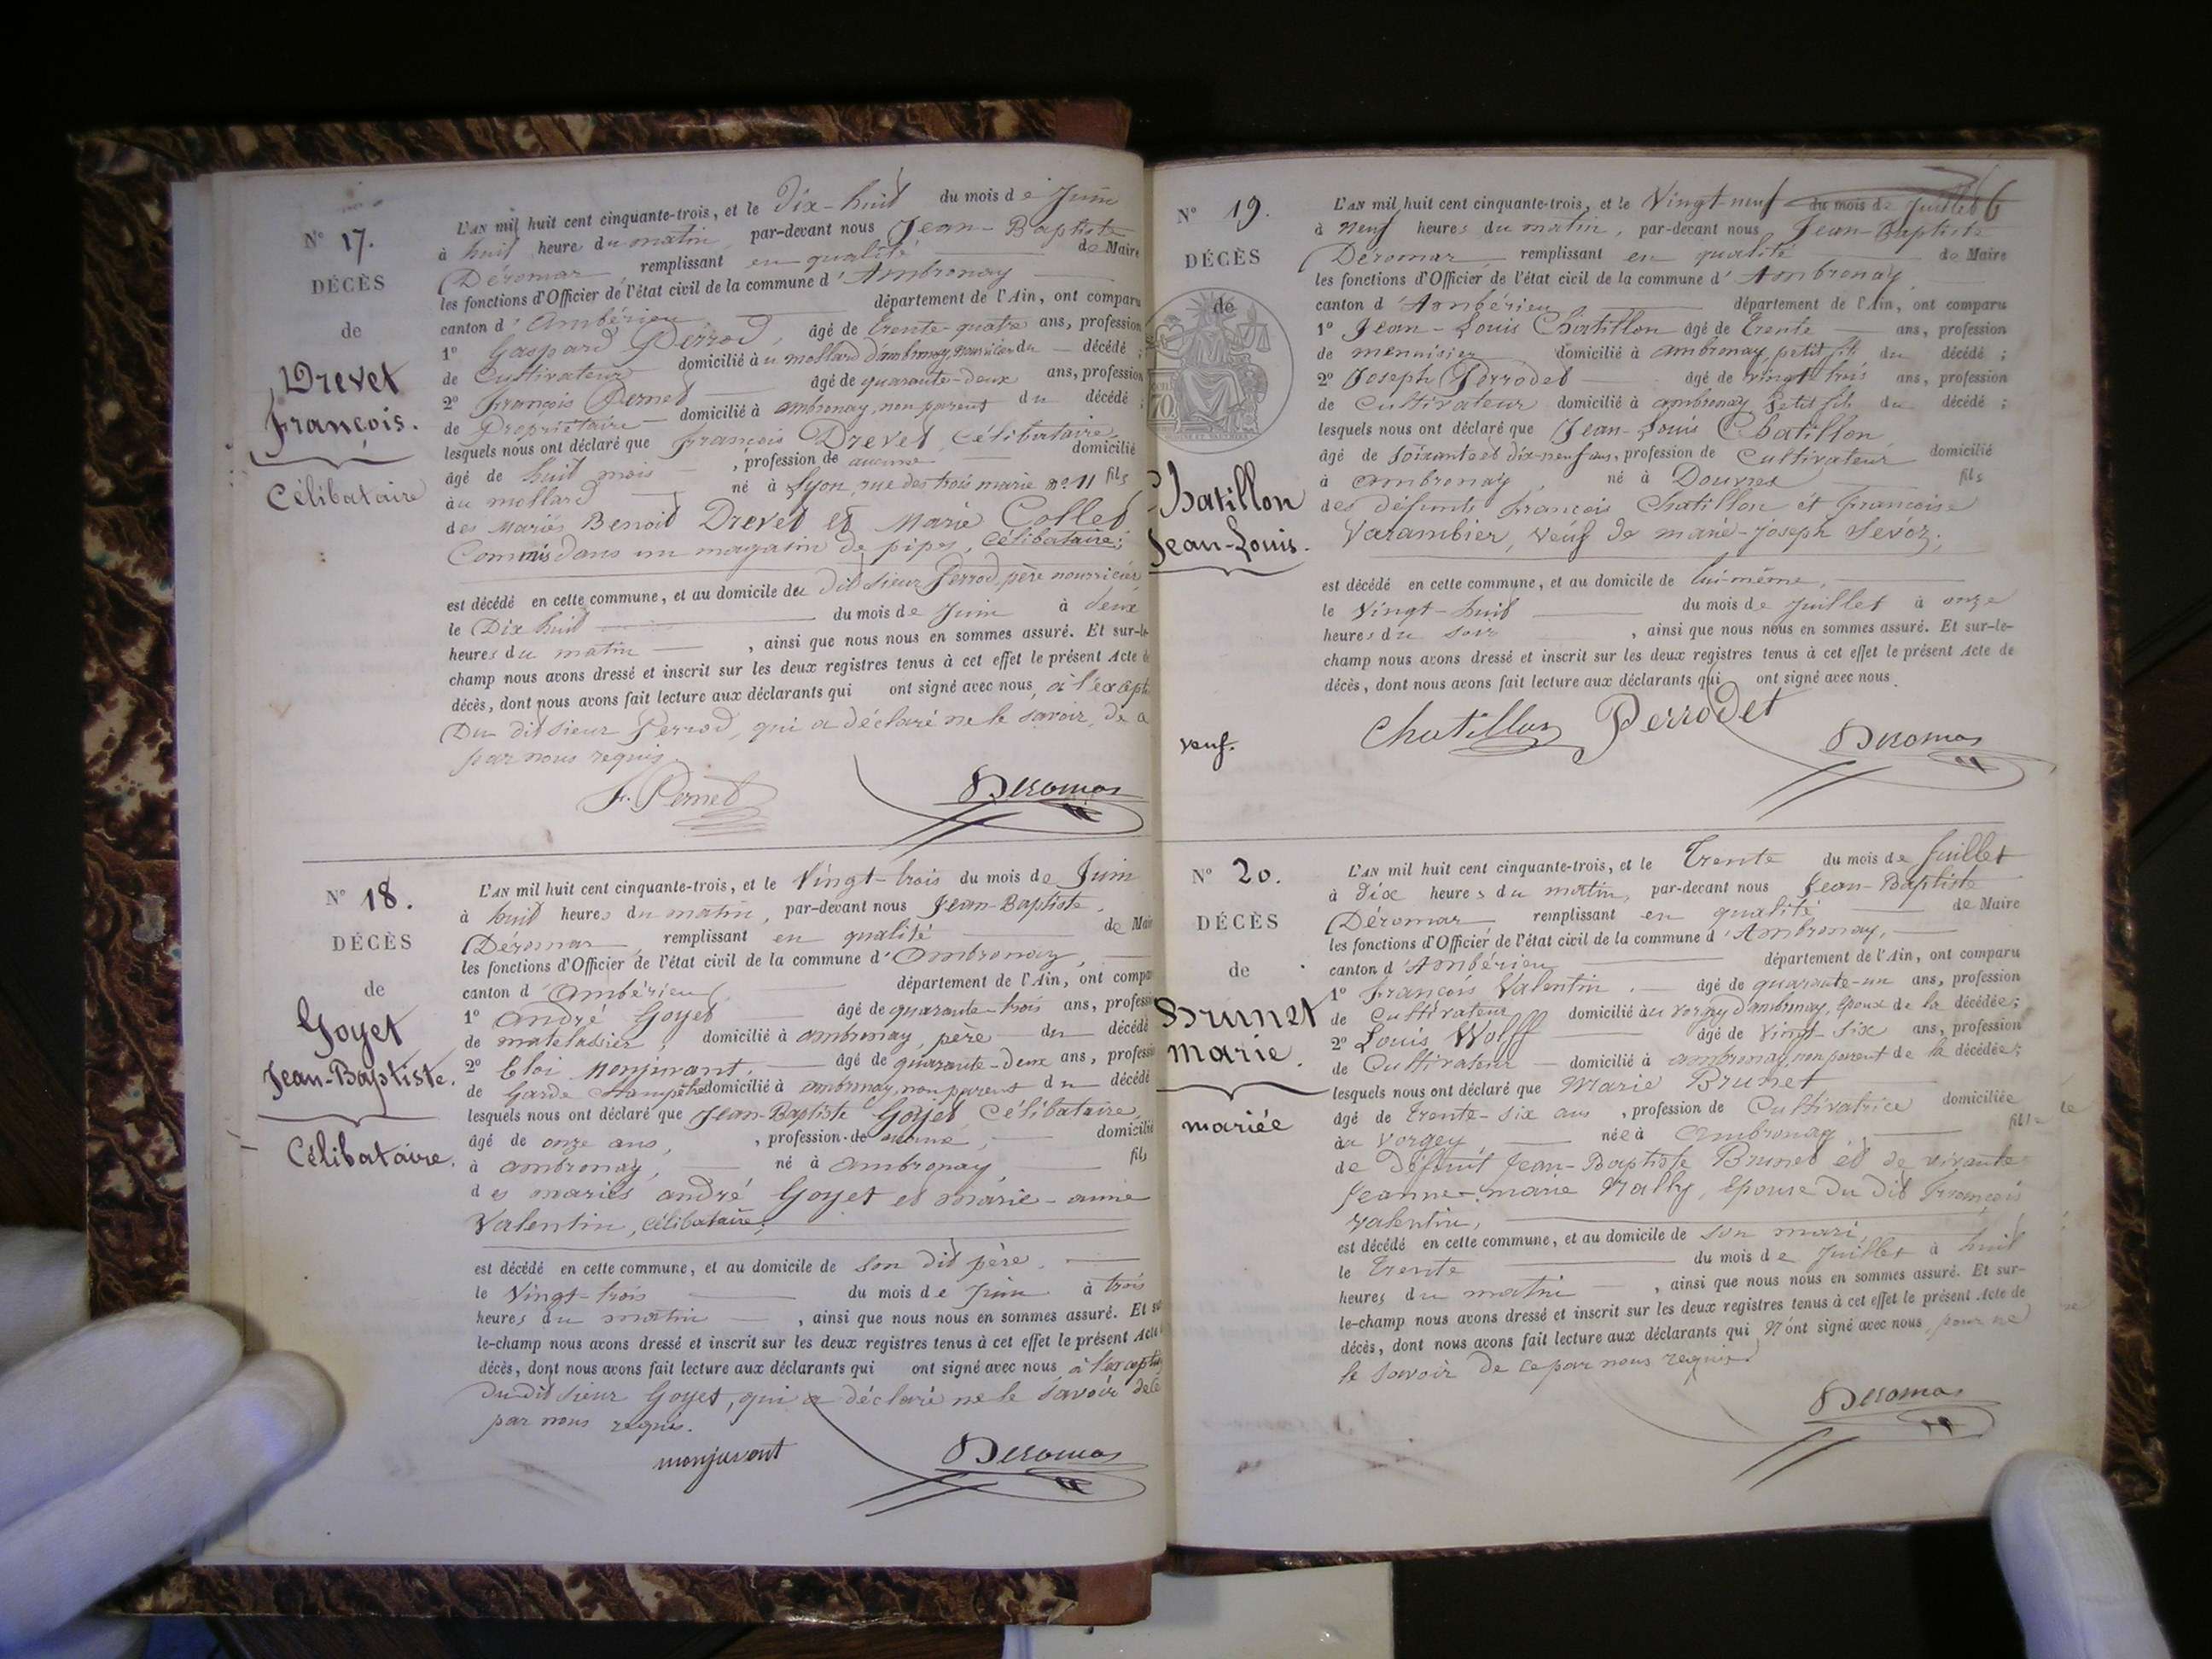 N° 17.
DÉCÈS
de
Drevet
François.
Célibataire
L'AN mil huit cent cinquante-trois, et le Dix-huit du mois de Juin
à huit heures du matin, par-devant nous Jean-Baptiste
Déromas remplissant en qualité de Maire
les fonctions d'Officier de l'état civil de la commune d'Ambronay
canton d'Ambérieu département de l'Ain, ont comparu
1° Gaspard Perrod, âgé de trente-quatre ans, profession
de Cultivateur domicilié au mollard d'ambronay, nourricier du décédé ;
2° François Pernet âgé de quarante-deux ans, profession
de Propriétaire domicilié à ambronay, non parent du décédé ;
lesquels nous ont déclaré que François Drevet, Célibataire,
âgé de huit mois, profession de aucune domicilié
au mollard né à Lyon, rue des trois marie n° 11 fils
des Mariés Benoit Drevet et Marie Collet
Commis dans un magasin de pipes, Célibataire ;
est décédé en cette commune, et au domicile du dit sieur Perrod, père nourricier
le Dix huit du mois de Juin à deux
heures du matin, ainsi que nous nous en sommes assuré. Et sur-le-
champ nous avons dressé et inscrit sur les deux registres tenus à cet effet le présent Acte de
décès, dont nous avons fait lecture aux déclarants qui ont signé avec nous, à l'except
Du dit sieur Perrod, qui a déclaré ne le savoir, de
par nous requis.
F. Pernet Deromas
N° 18.
DÉCÈS
de
Goyet
Jean-Baptiste.
Célibataire.
L'AN mil huit cent cinquante-trois, et le Vingt-trois du mois de Juin
à huit heures du matin, par-devant nous Jean-Baptiste
Déromas, remplissant en qualité de Mai
les fonctions d'Officier de l'état civil de la commune d'Ambronay,
canton d'Ambérieu département de l'Ain, ont compa
1° André Goyet âgé de quarante-trois ans, professi
de matelassier, domicilié à ambronay, père du décédé
2° Eloi Monjuvant, âgé de quarante-Deux ans, professi
de Garde champêtre domicilié à ambronay, non parent du décédé
lesquels nous ont déclaré que Jean-Baptiste Goyet, Célibataire,
âgé de onze ans, profession de aucune, domicilié
à ambronay, né à Ambronay, fils
des mariés andré Goyet et marie-anne
Valentin, célibataire ;
est décédé en cette commune, et au domicile de son dit père.
le Vingt-trois du mois de Juin à trois
heures du matin, ainsi que nous nous en sommes assuré. Et sur
le-champ nous avons dressé et inscrit sur les deux registres tenus à cet effet le présent Acte
décès, dont nous avons fait lecture aux déclarants qui ont signé avec nous, à l'exception
Du dit sieur Goyet, qui a déclaré ne le savoir de ce
par nous requis.
monjuvant Deromas
6
N° 19.
DÉCÈS
de
Chatillon
Jean-Louis.
veuf.
L'AN mil huit cent cinquante-trois, et le Vingt neuf du mois de Juillet
à neuf heures du matin, par-devant nous Jean-Baptiste
Déromas remplissant en qualité de Maire
les fonctions d'Officier de l'état civil de la commune d'Ambronay
canton d'Ambérieu département de l'Ain, ont comparu
1° Jean-Louis Chatillon âgé de trente ans, profession
de menuisier domicilié à ambronay, petit fils du décédé ;
2° Joseph Perrodet âgé de vingt trois ans, profession
de Cultivateur domicilié à ambronay, petit fils du décédé ;
lesquels nous ont déclaré que Jean-Louis Chatillon
âgé de Soixante et dix-neuf ans, profession de Cultivateur domicilié
à ambronay, né à Douvres fils
des défunts François Chatillon et Françoise
Varambier, veuf de marie-joseph Sevoz ;
est décédé en cette commune, et au domicile de lui-même,
le Vingt-huit du mois de Juillet à onze
heures du soir, ainsi que nous nous en sommes assuré. Et sur-le-
champ nous avons dressé et inscrit sur les deux registres tenus à cet effet le présent Acte de
décès, dont nous avons fait lecture aux déclarants qui ont signé avec nous.
Chatillon Perrodet Deromas
N° 20.
DÉCÈS
de
Brunet
Marie.
mariée
L'AN mil huit cent cinquante-trois, et le Trente du mois de Juillet
à dix heures du matin, par-devant nous Jean-Baptiste
Déromas remplissant en qualité de Maire
les fonctions d'Officier de l'état civil de la commune d'Ambronay,
canton d'Ambérieu département de l'Ain, ont comparu
1° François Valentin, âgé de quarante-un ans, profession
de Cultivateur domicilié au vorgey d'ambronay, époux de la décédée ;
2° Louis Wolff âgé de Vingt-six ans, profession
de Cultivateur domicilié à ambronay, non parent de la décédée ;
lesquels nous ont déclaré que Marie Brunet
âgé de trente-six ans, profession de Cultivatrice domiciliée
au Vorgey, née à Ambronay, fille
de Défunt Jean-Baptiste Brunet et de vivante
Jeanne-marie Nally, Epouse Du dit François
Valentin,
est décédé en cette commune, et au domicile de son mari
le Trente du mois de Juillet à huit
heures du matin, ainsi que nous nous en sommes assuré. Et sur-
le-champ nous avons dressé et inscrit sur les deux registres tenus à cet effet le présent Acte de
décès, dont nous avons fait lecture aux déclarants qui n'ont signé avec nous, pour ne
le savoir de ce par nous requis
Deromas